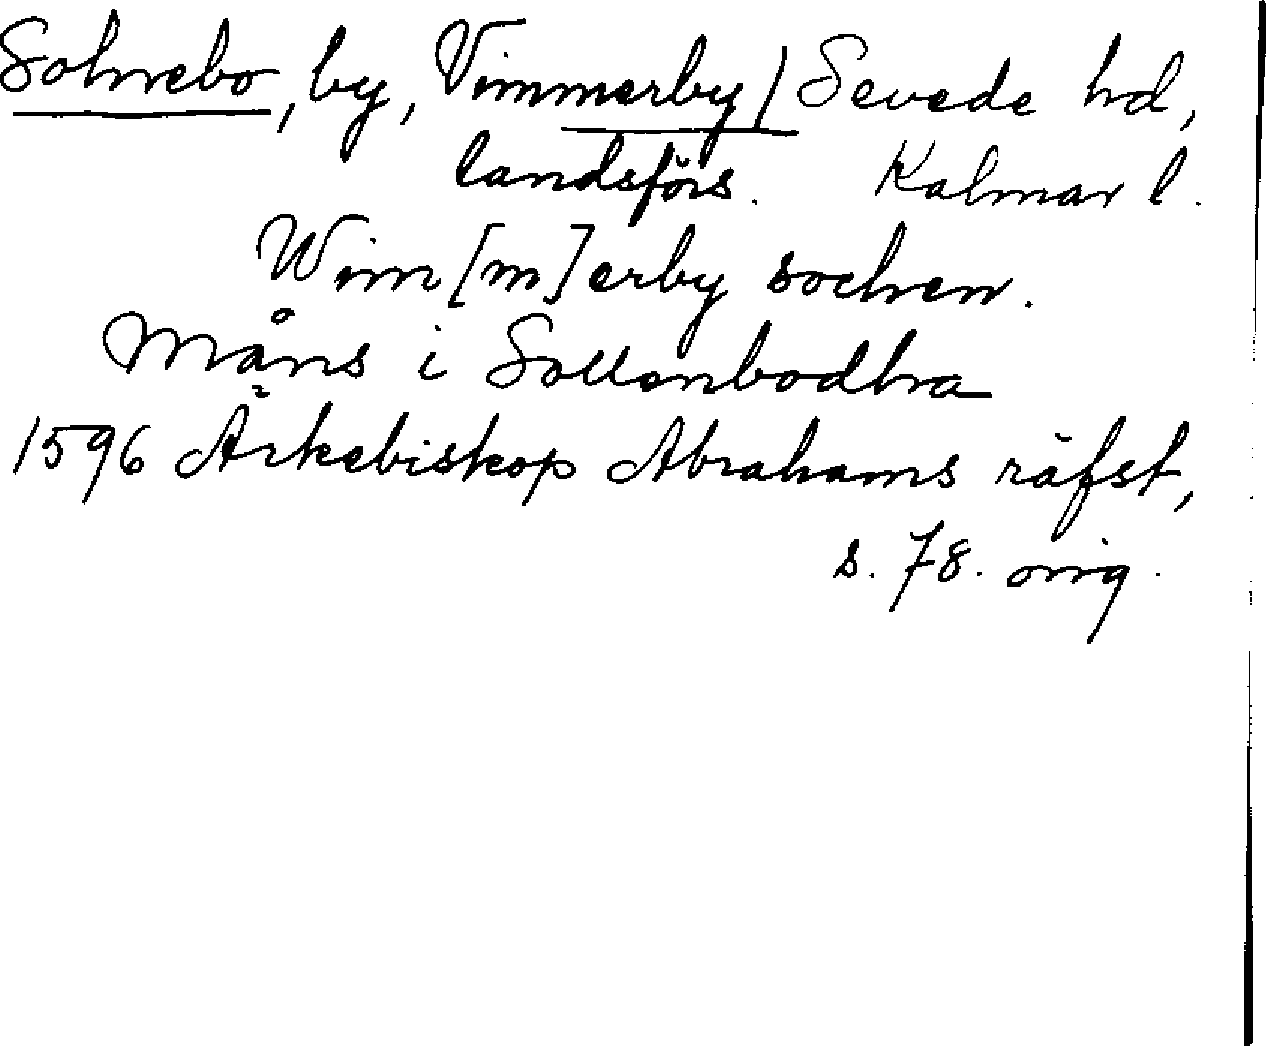 Solnebo, by, Vimmerby / Sevede hd,
landsförs. Kalmar l.
Wim[m]erby sochen.
Måns i Sollenbodha
1596 Ärkebiskop Abrahams räfst,
s. 78. orig.